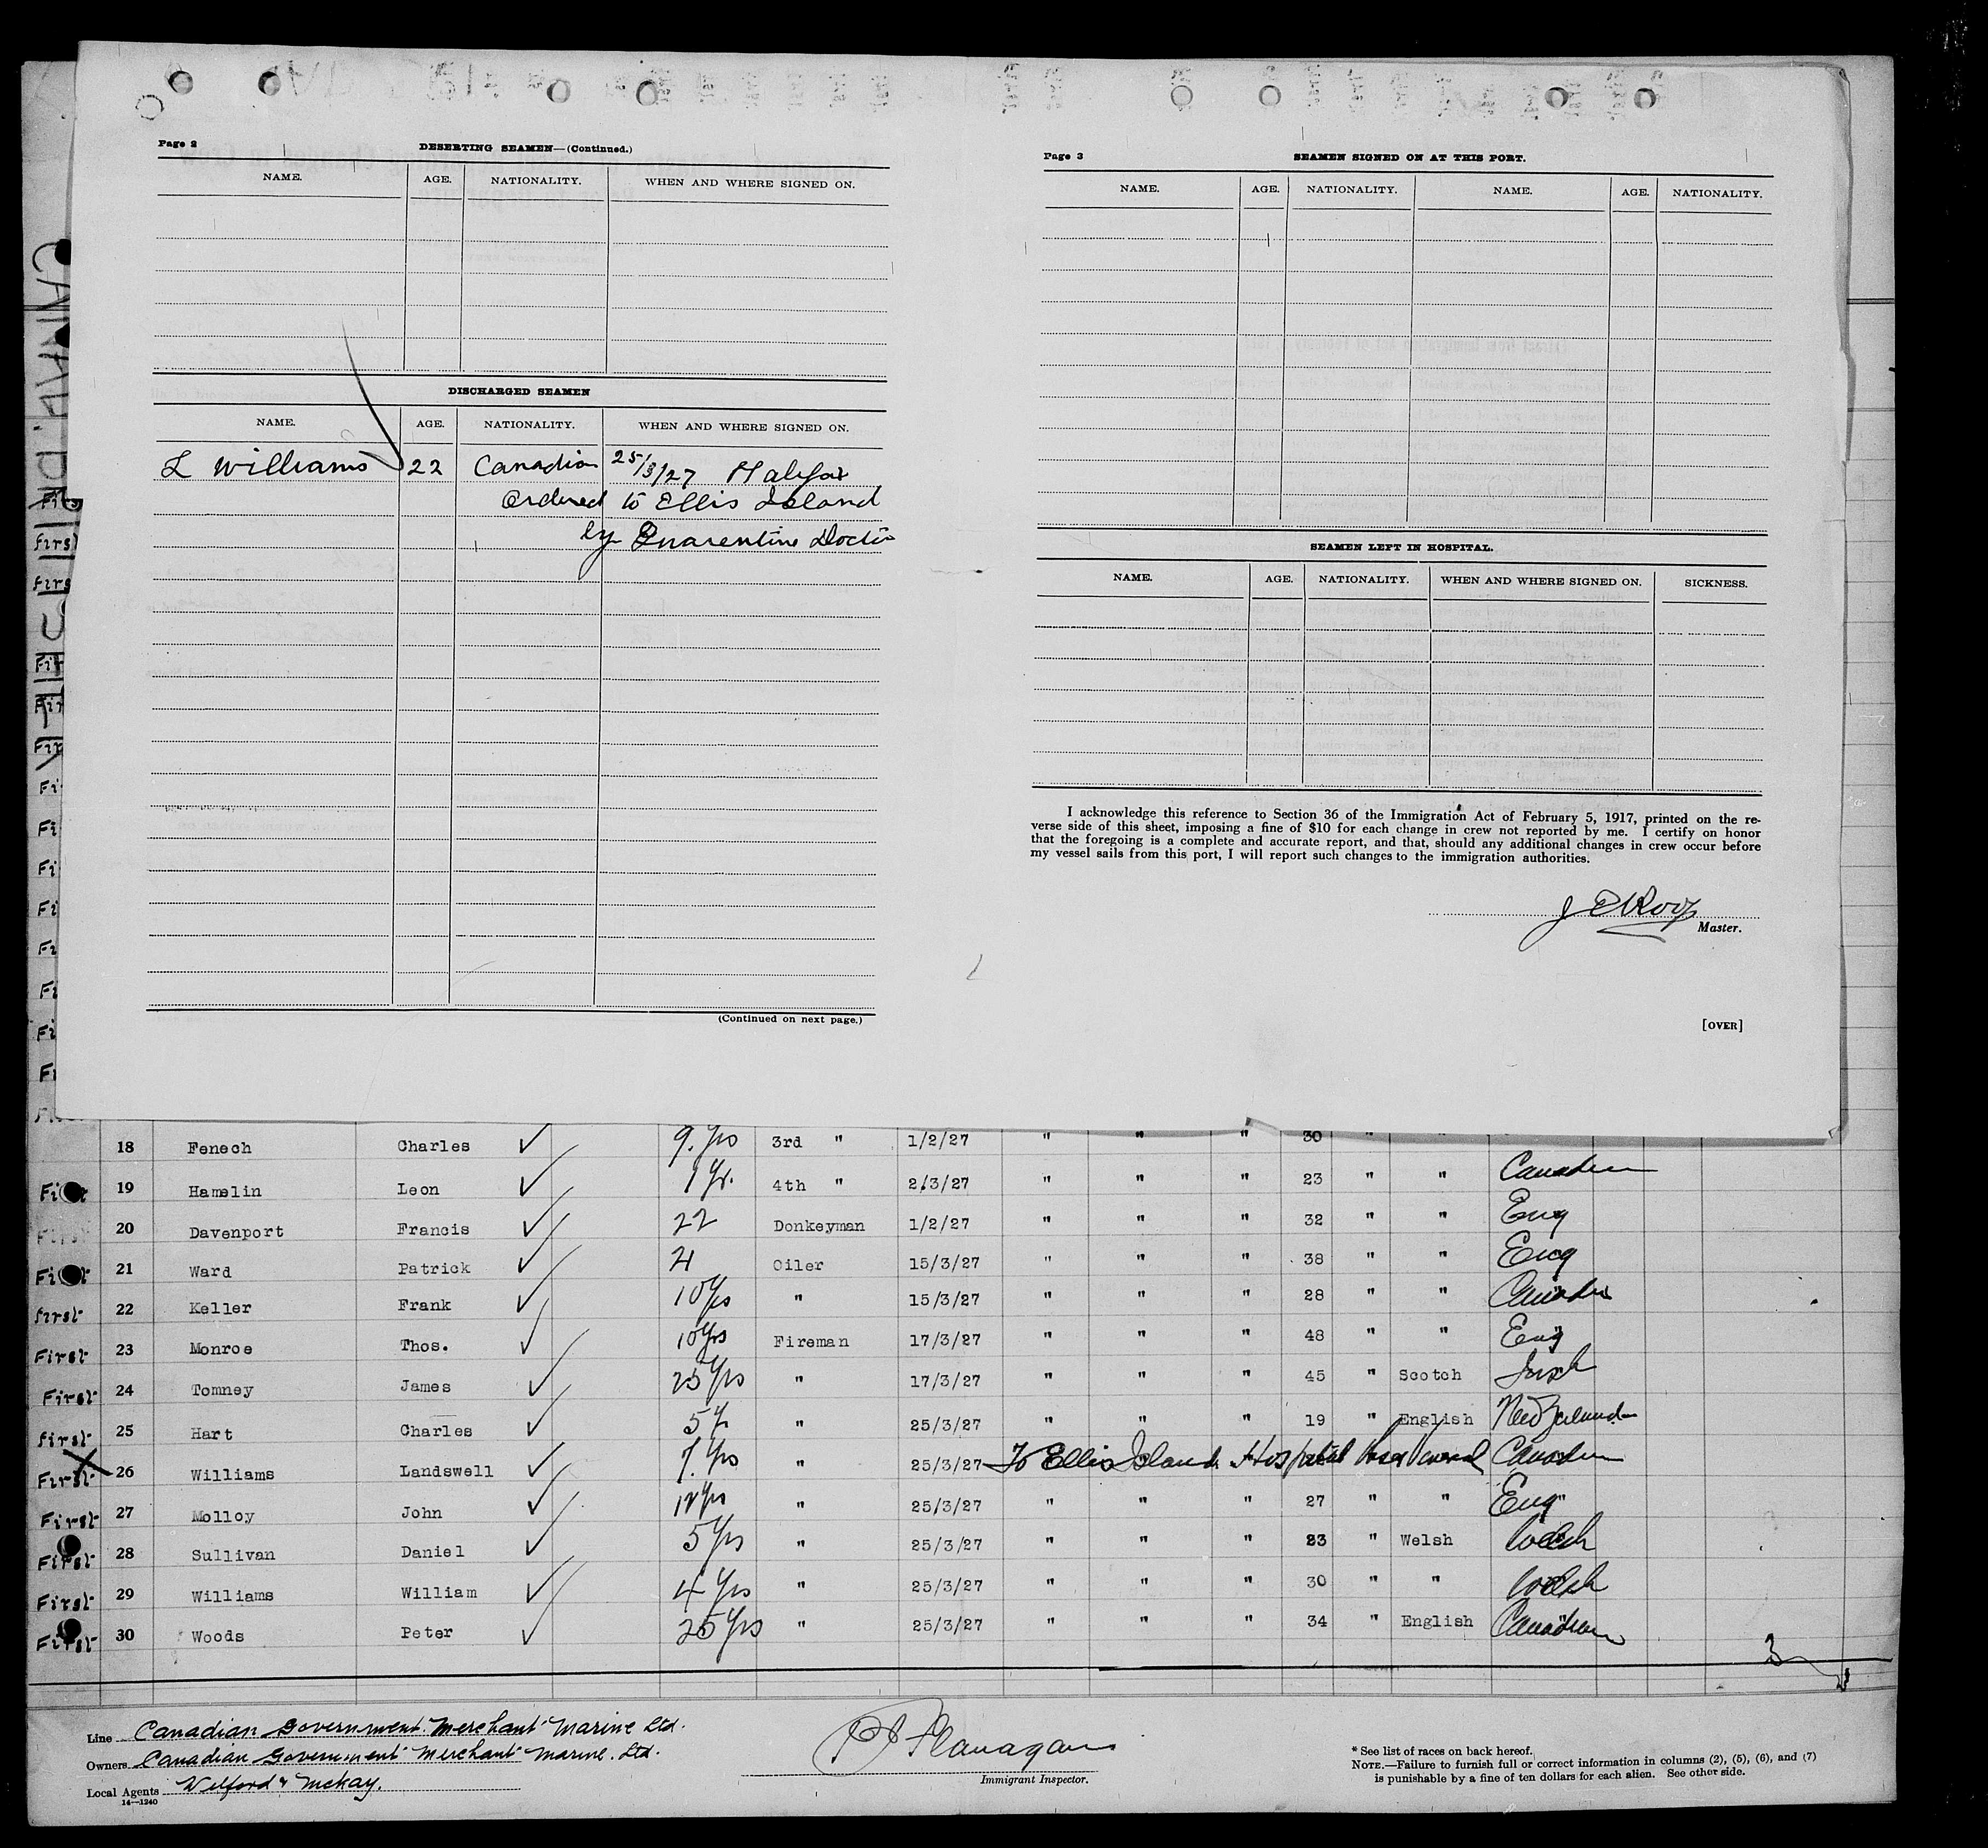 Page 2
DESERTING SEAMEN—(Continued.)
NAME. AGE. NATIONALITY. WHEN AND WHERE SIGNED ON.
DISCHARGED SEAMEN
NAME. AGE. NATIONALITY. WHEN AND WHERE SIGNED ON.
L Williams 22 Canadian 25/3/27 Halifax
Ordered to Ellis Island
by Quarentine Doctor
(Continued on next page.)
Page 3
SEAMEN SIGNED ON AT THIS PORT.
NAME. AGE. NATIONALITY. NAME. AGE. NATIONALITY.
SEAMEN LEFT IN HOSPITAL.
NAME. AGE. NATIONALITY. WHEN AND WHERE SIGNED ON. SICKNESS.
I acknowledge this reference to Section 36 of the Immigration Act of February 5, 1917, printed on the re-
verse side of this sheet, imposing a fine of $10 for each change in crew not reported by me. I certify on honor
that the foregoing is a complete and accurate report, and that, should any additional changes in crew occur before
my vessel sails from this port, I will report such changes to the immigration authorities.
Master.
[OVER]
18 Fenech Charles 9. Yrs 3rd " 1/2/27 " " " 30 " "
19 Hamelin Leon 1 Yr. 4th " 2/3/27 " " " 23 " " Canadien
20 Davenport Francis 22 Donkeyman 1/2/27 " " " 32 " " Eng
21 Ward Patrick 21 Oiler 15/3/27 " " " 38 " " Eng
First 22 Keller Frank 10 Yrs " 15/3/27 " " " 28 " " Canadien
First 23 Monroe Thos. 10 Yrs Fireman 17/3/27 " " " 48 " " Eng
First 24 Tomney James 25 Yrs " 17/3/27 " " " 45 " Scotch Irish
First 25 Hart Charles 5 Y " 25/3/27 " " " 19 " English New Zealand
First 26 Williams Landswell 7. Yrs " 25/3/27 To Ellis Island Hospital Canadien
First 27 Molloy John Yrs " 25/3/27 " " " 27 " " Eng
First 28 Sullivan Daniel 5 Yrs " 25/3/27 " " " 23 " Welsh Welsh
First 29 Williams William 4 Yrs " 25/3/27 " " " 30 " " Welsh
First 30 Woods Peter 25 Yrs " 25/3/27 " " " 34 " English Canadian
3
Line Canadian Government Merchant Marine Ltd.
Owners Canadian Government Merchant Marine. Ltd.
Local Agents Wilford & McKay.
14—1240
P J Flanagan
Immigrant Inspector.
* See list of races on back hereof.
NOTE.—Failure to furnish full or correct information in columns (2), (5), (6), and (7)
is punishable by a fine of ten dollars for each alien. See other side.